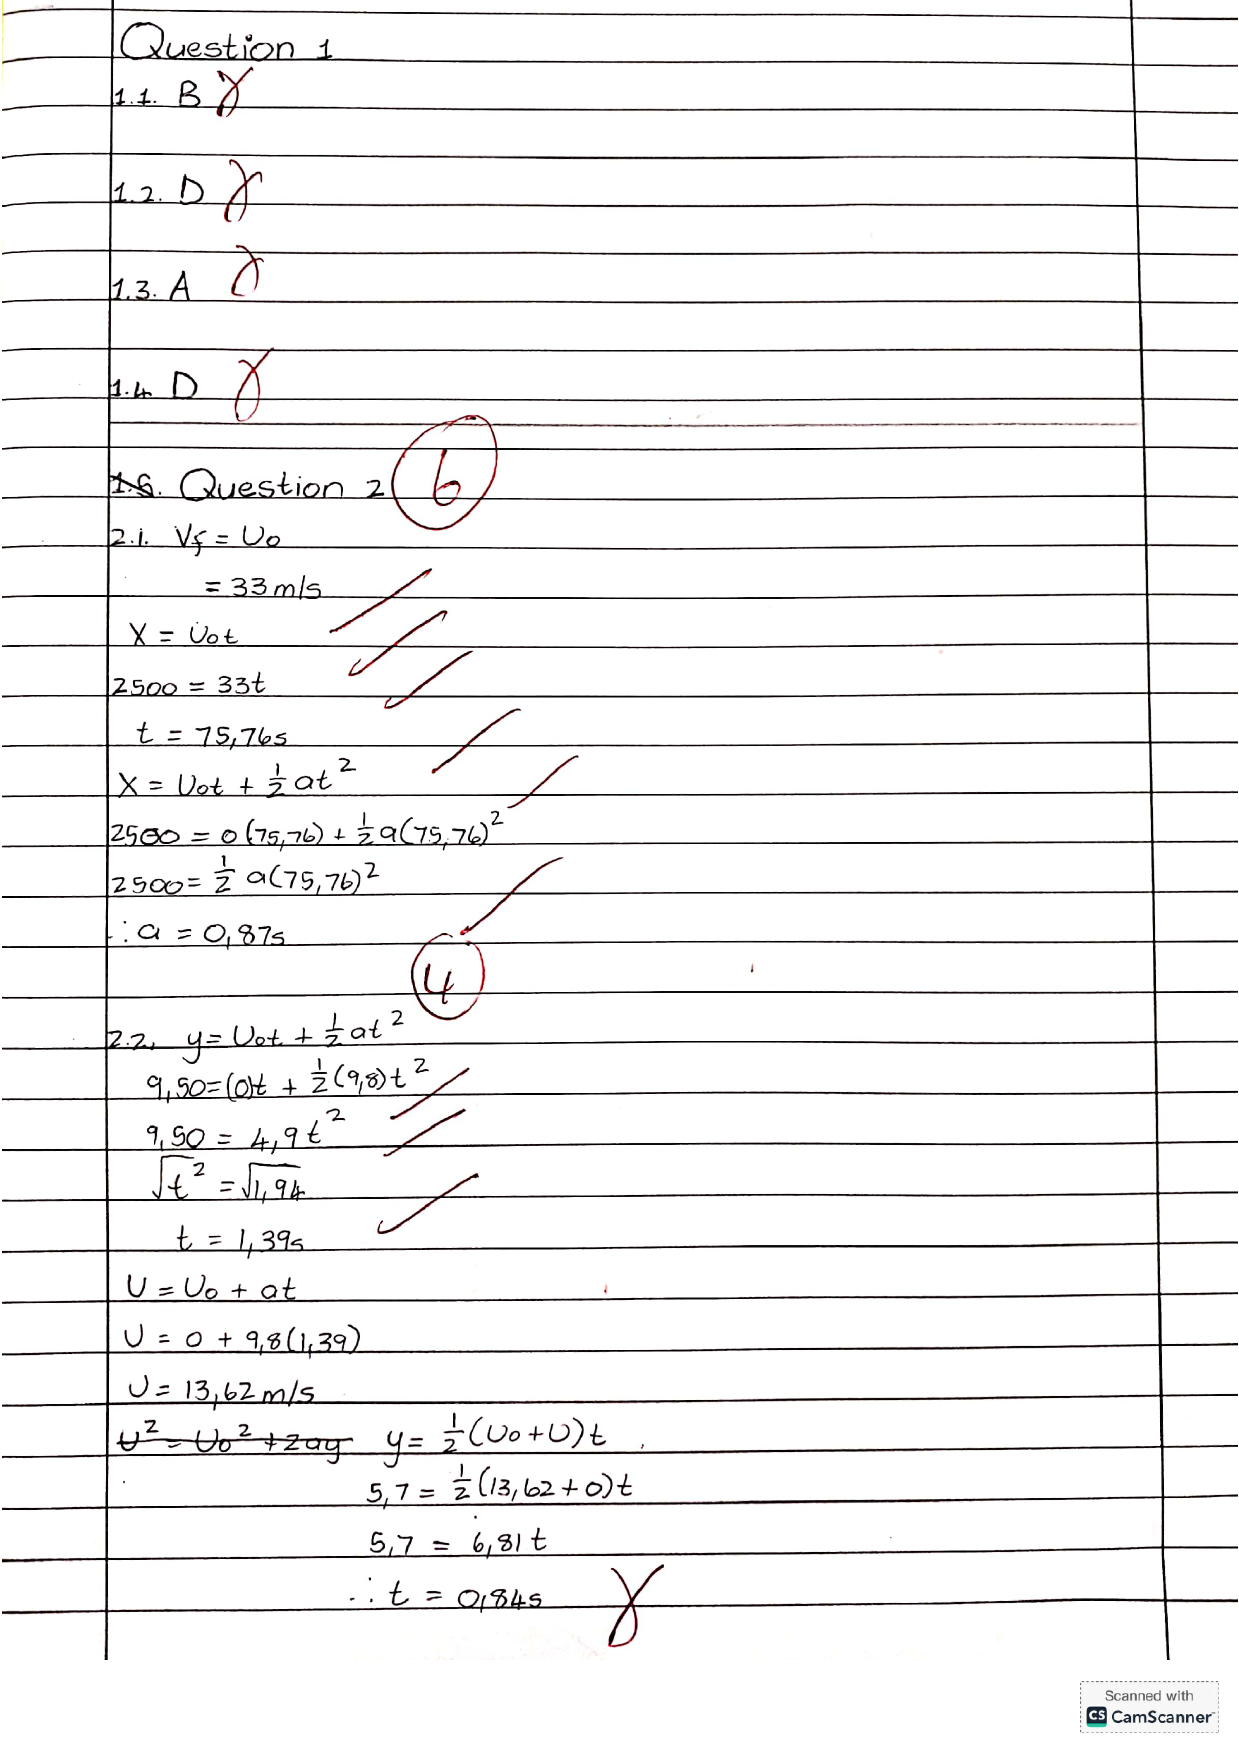 Question 1
1.1. B
1.2. D
1.3. A
1.4 D
6
1.5. Question 2
2.1. Vf = Uo
= 33 m/s
X = Uot
2500 = 33t
t = 75,76s
X = Uot + 1/2 at²
2500 = 0(75,76) + 1/2 a(75,76)²
2500 = 1/2 a(75,76)²
∴ a = 0,87s
4
2.2. y = Uot + 1/2 at²
9,50 = (0)t + 1/2 (9,8)t²
9,50 = 4,9t²
√t² = √1,94
t = 1,39s
U = Uo + at
U = 0 + 9,8(1,39)
U = 13,62 m/s
U² = Uo² + 2ay y = 1/2 (Uo + U)t
5,7 = 1/2 (13,62 + 0)t
5,7 = 6,81t
∴ t = 0,84s
Scanned with
CS CamScanner